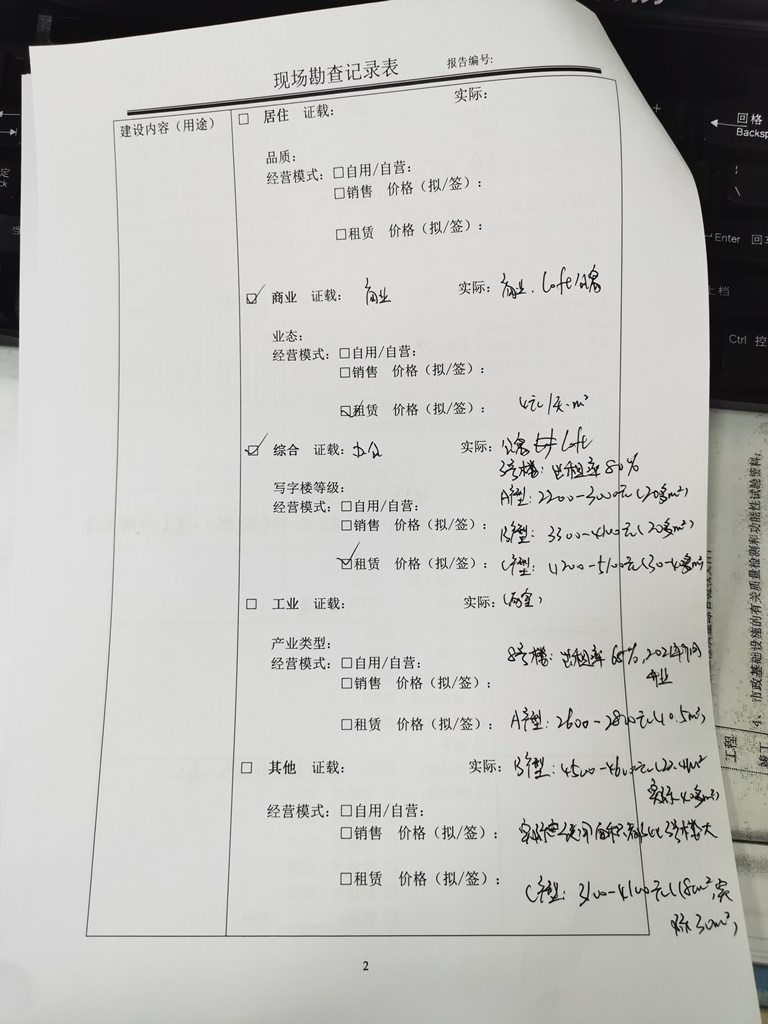 现场勘查记录表 报告编号:
建设内容（用途） □ 居住 证载: 实际:
品质:
经营模式: □自用/自营:
□销售 价格（拟/签）:
□租赁 价格（拟/签）:
☑ 商业 证载: 商业 实际: 商业. Loft公寓
业态:
经营模式: □自用/自营:
□销售 价格（拟/签）:
☑租赁 价格（拟/签）: 4元/天·m²
☑ 综合 证载: 办公 实际: 公寓 Loft
3号楼: 出租率80%
写字楼等级: A户型: 2200-3000元(20多m²)
经营模式: □自用/自营:
□销售 价格（拟/签）: B户型: 3300-4100元(20多m²)
☑租赁 价格（拟/签）: C户型: 4200-5100元(30-40多m²)
□ 工业 证载: 实际: (两室)
产业类型: 8号楼: 出租率65%, 2021年
经营模式: □自用/自营: 开业
□销售 价格（拟/签）:
□租赁 价格（拟/签）: A户型: 2600-2800元(10.5m²)
□ 其他 证载: 实际: B户型: 4500-4600元(22.41m²
实际40多m²)
经营模式: □自用/自营:
□销售 价格（拟/签）: 实际使用面积都比3号楼大
□租赁 价格（拟/签）: C户型: 3100-4100元(18m²,实
际30m²)
2
回格
Backsp
Enter 回车
上档
Ctrl 控
4、市政基础设施的有关质量检测和功能性试验资料;
工程
竣工